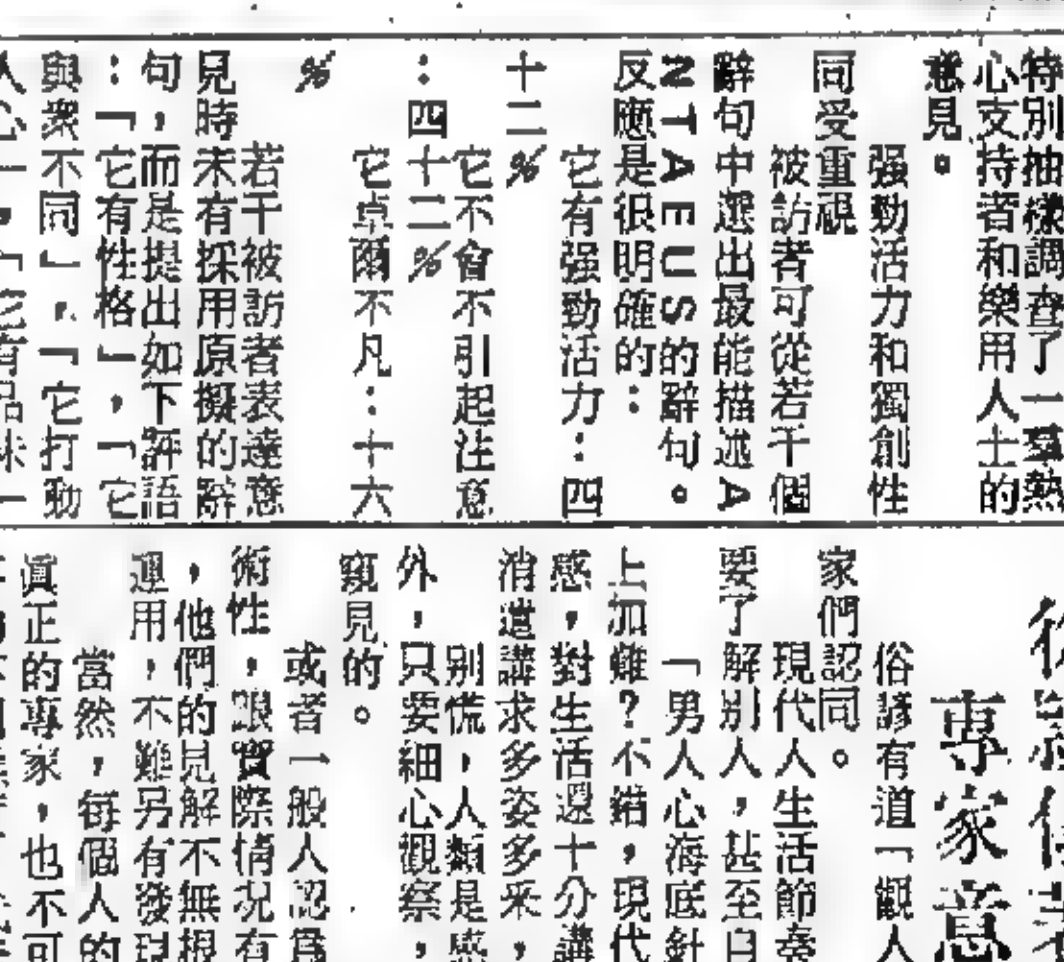 特別抽樣調查了一羣熱
心支持者和樂用人士的
意見。
强勁活力和獨創性
同受重視
被訪者可從若干個
辭句中選出最能描述A
NTAEUS的辭句。
反應是很明確的：
它有强勁活力：四
十二%
它不會不引起注意
：四十二%
它卓爾不凡：十六
%
若干被訪者表達意
見時未有採用原擬的辭
句，而是提出如下評語
：「它有性格」，「它
與衆不同」，「它打動
專家意
俗諺有道「觀人
家們認同。
現代人生活節奏
要了解別人，甚至自
「男人心海底針
上加難？不錯，現代
感，對生活還十分講
消遣講求多姿多来，
別慌，人類是感
外，只要細心觀察，
窺見的。
或者一般人認爲
術性，跟實際情況有
，他們的見解不無根
運用，不難另有發現
當然，每個人的
眞正的專家，也不可